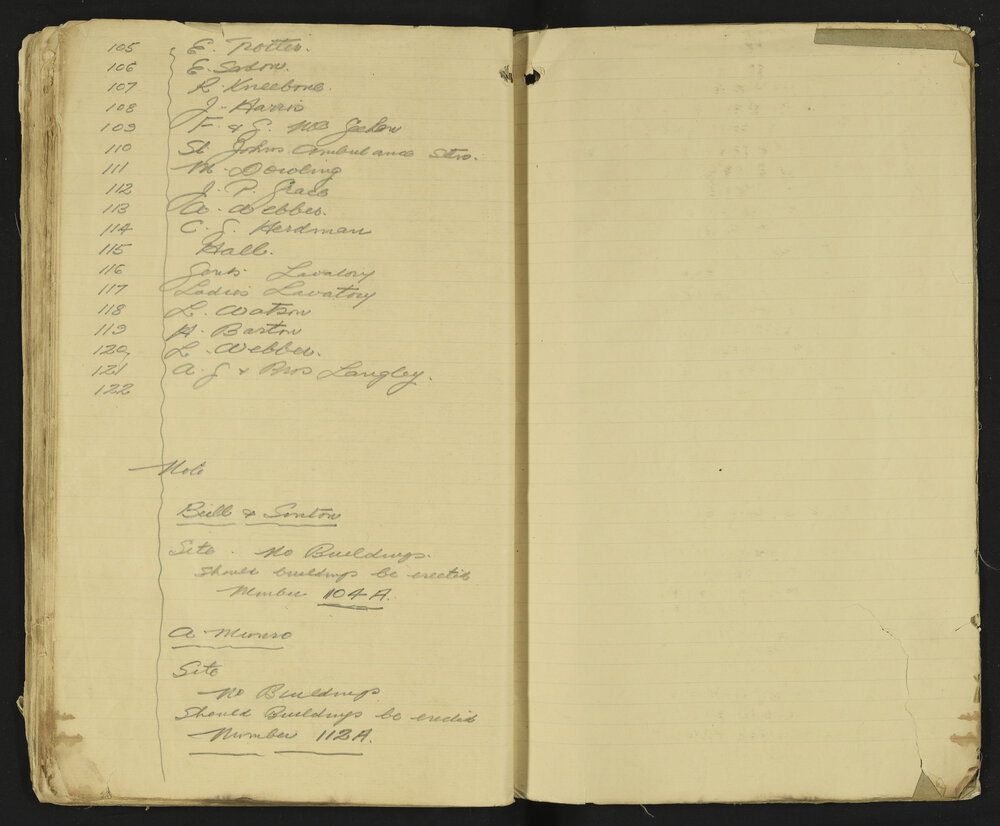 105 E. Trotter.
106 E.
107 R. Kneebone.
108 J. Harris
109 F & G.
110 St Johns Ambulance Stn.
111 M. Dowling
112 J. P. Grace
113 A. Webber.
114 C. J. Herdman
115 Hall.
116 Gents. Lavatory
117 Ladies Lavatory
118 L. Watson
119 H. Barton
120 L. Webber.
121 A. J & Bros Langley.
122
Note
Bell &
Site. No Buildings.
Should buildings be erected
Number 104A.
A Munro
Site
No Buildings
Should Buildings be erected
Number 112A.